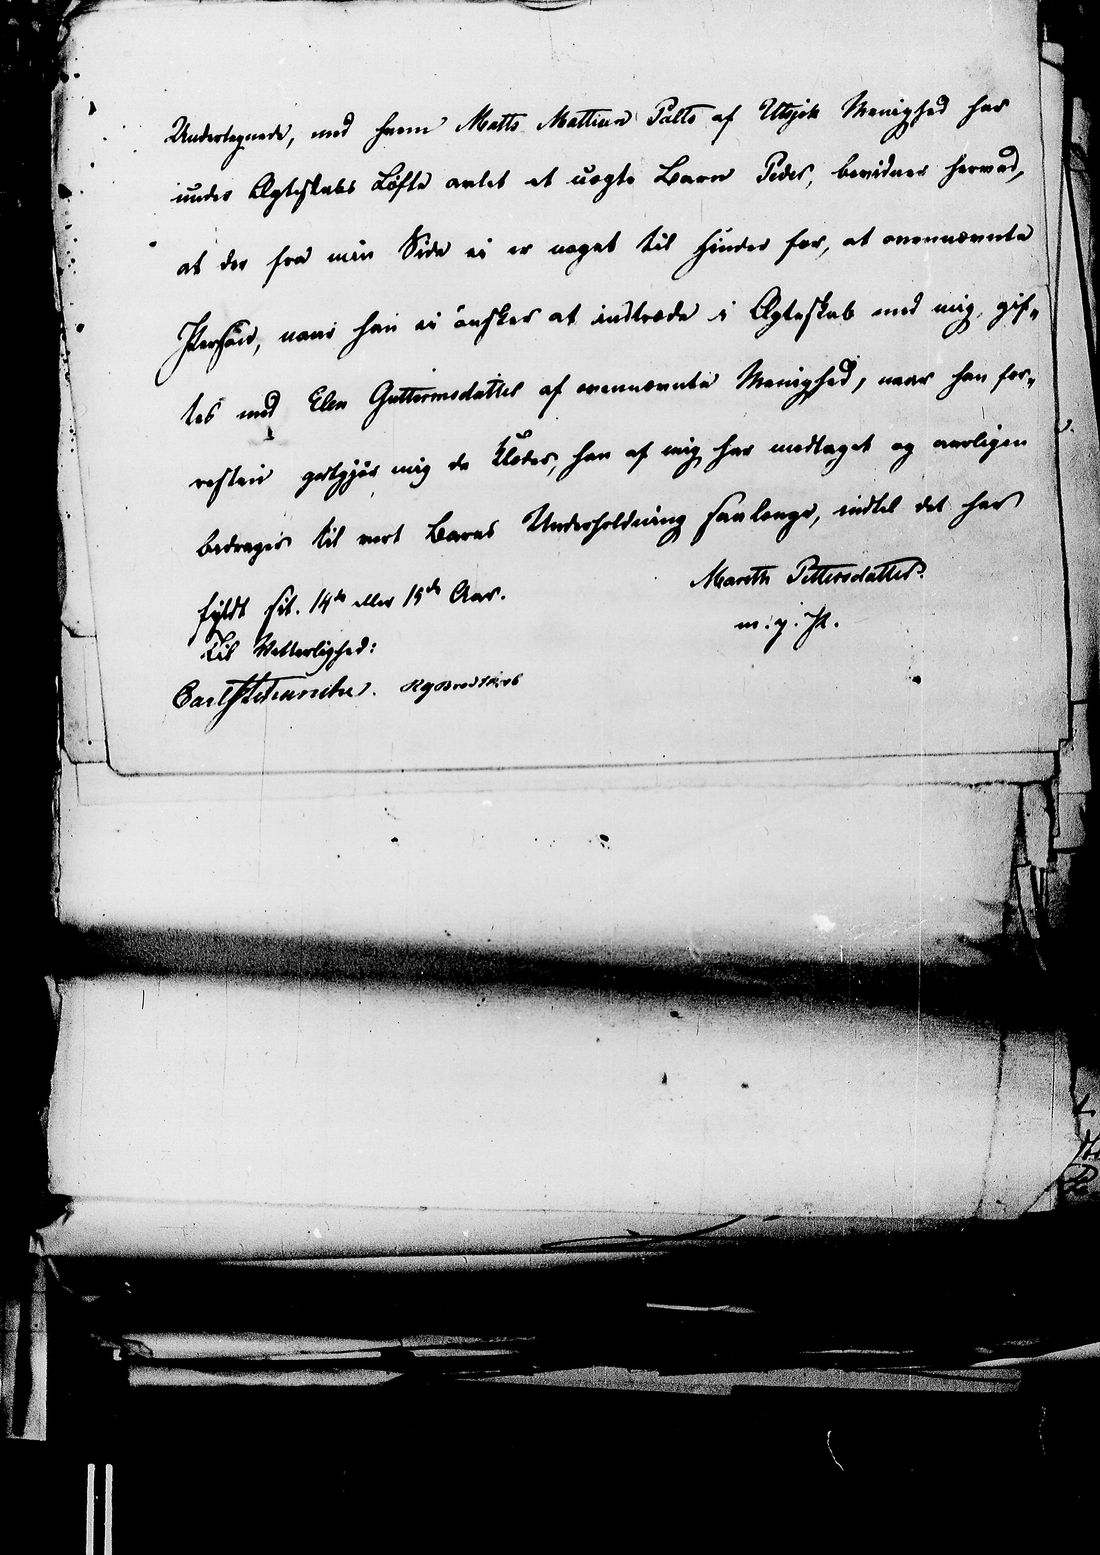 Undertegnede, med hvem Matts Mattisen Palto af Utsjok Menighed har
under Ægteskabs Løfte avlet et uægte Barn Peder, bevidner herved,
at der fra min Side ei er noget til Hinder for, at ovennævnte
Person, naar han ei ønsker at indtræde i Ægteskab med mig, gif-
tes med Elen Guttormsdatter af ovennævnte Menighed, naar han for-
resten godtgjør mig de Klæder, han af mig har modtaget og aarligen
bedrager til vort Barns Underholdning saalænge, indtil det har
fyldt sit 14de eller 15de Aar.
Mareth Pettersdatter.
m. p. P.
Til Vitterlighed:
Carl